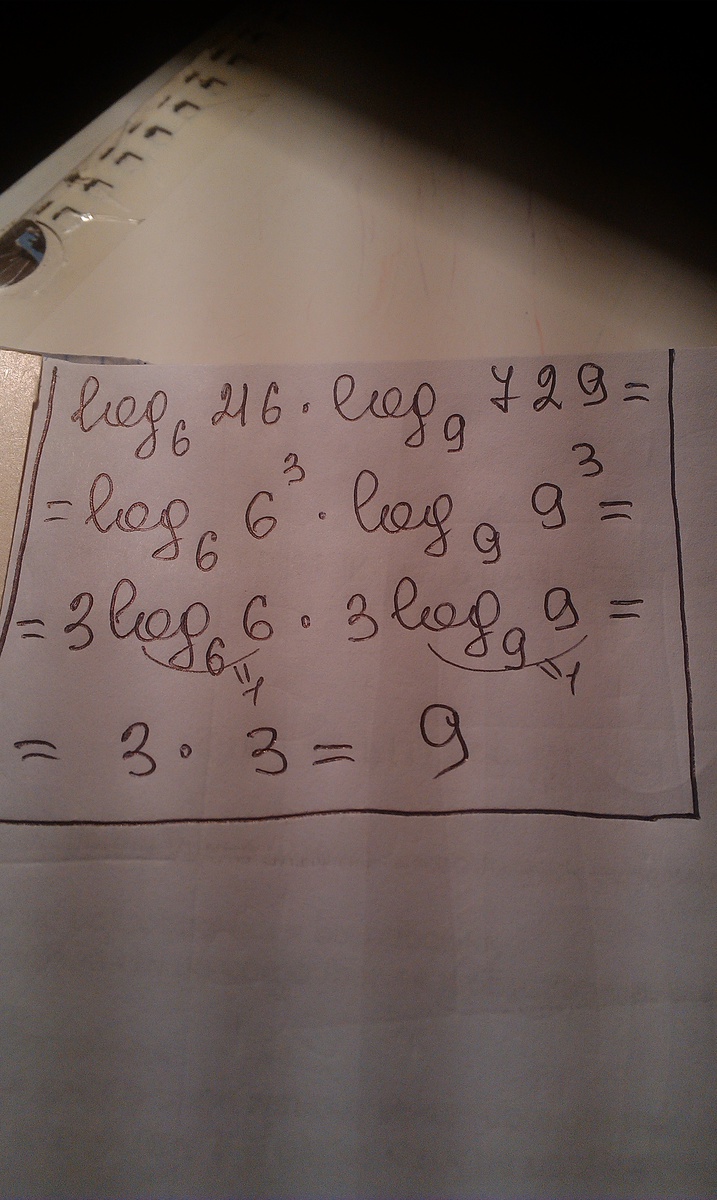 log₆ 216 · log₉ 729 =
= log₆ 6³ · log₉ 9³ =
= 3 log₆ 6 · 3 log₉ 9 =
=1 =1
= 3 · 3 = 9